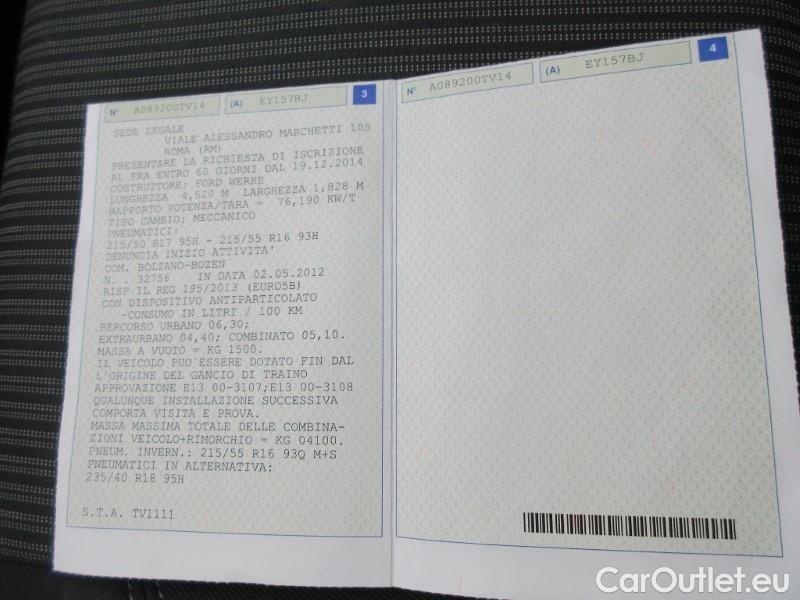 N° A089200TV14 (A) EY157BJ 3
SEDE LEGALE
VIALE ALESSANDRO MARCHETTI 105
ROMA (RM)
PRESENTARE LA RICHIESTA DI ISCRIZIONE
AL PRA ENTRO 60 GIORNI DAL 19.12.2014
COSTRUTTORE: FORD WERKE
LUNGHEZZA 4,520 M LARGHEZZA 1,828 M
RAPPORTO POTENZA/TARA = 76,190 KW/T
TIPO CAMBIO: MECCANICO
PNEUMATICI:
215/50 R17 95H - 215/55 R16 93H
DENUNCIA INIZIO ATTIVITA'
COM. BOLZANO-BOZEN
N. . 32756 IN DATA 02.05.2012
RISP IL REG 195/2013 (EURO5B)
CON DISPOSITIVO ANTIPARTICOLATO
-CONSUMO IN LITRI / 100 KM
PERCORSO URBANO 06,30;
EXTRAURBANO 04,40; COMBINATO 05,10.
MASSA A VUOTO = KG 1500.
IL VEICOLO PUO'ESSERE DOTATO FIN DAL
L'ORIGINE DEL GANCIO DI TRAINO
APPROVAZIONE E13 00-3107;E13 00-3108
QUALUNQUE INSTALLAZIONE SUCCESSIVA
COMPORTA VISITA E PROVA.
MASSA MASSIMA TOTALE DELLE COMBINA-
ZIONI VEICOLO+RIMORCHIO = KG 04100.
PNEUM. INVERN.: 215/55 R16 93Q M+S
PNEUMATICI IN ALTERNATIVA:
235/40 R18 95H
S.T.A. TV1111
N° A089200TV14 (A) EY157BJ 4
CarOutlet.eu